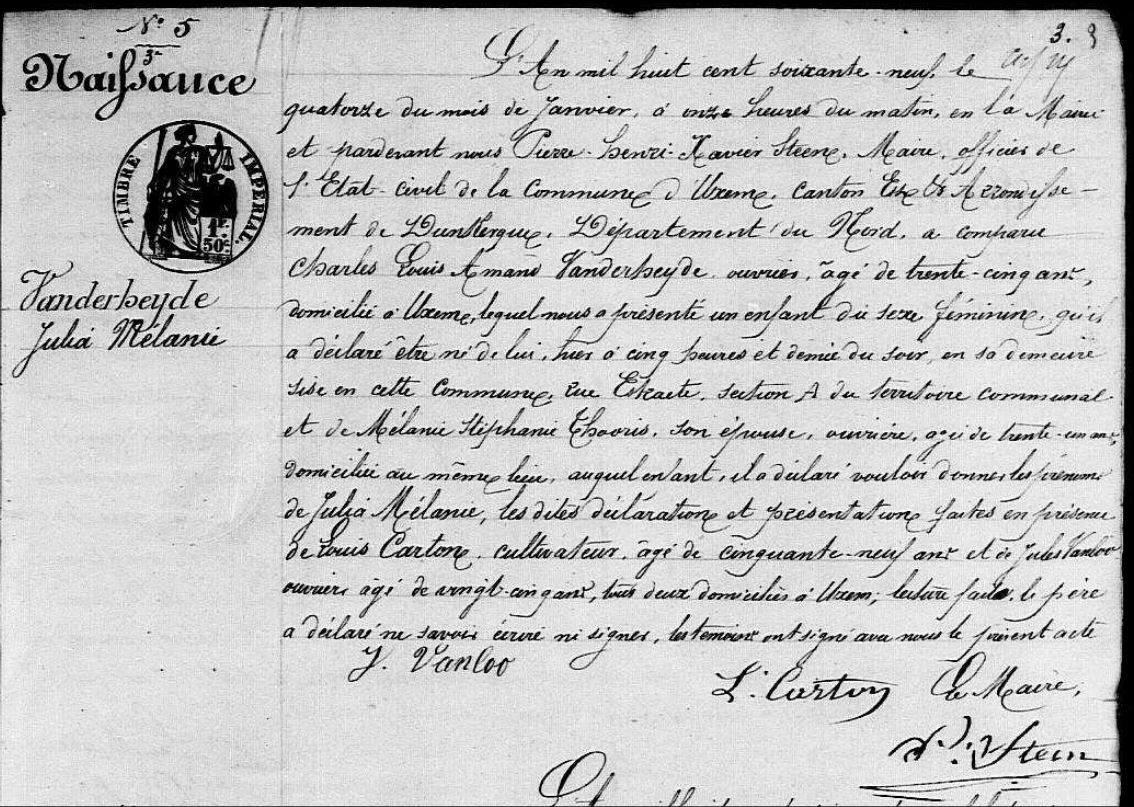 N.° 5
3.
Naissance
TIMBRE IMPERIAL.
1F.
50c.
Vanderheyde
Julia Mélanie
3.
L'An mil huit cent soixante-neuf, le
quatorze du mois de Janvier, à onze heures du matin, en la Mairie
et pardevant nous Pierre-Henri-Xavier Steen, Maire, officier de
l'Etat-civil de la Commune d'Uxem, canton Est & Arrondisse-
ment de Dunkerque, Département du Nord, a comparu
Charles Louis Amand Vanderheyde ouvrier, âgé de trente-cinq ans,
domicilié à Uxem, lequel nous a présenté un enfant du sexe féminin, qu'il
a déclaré être né de lui, hier à cinq heures et demie du soir, en sa demeure
sise en cette Commune, rue section A du territoire communal
et de Mélanie Stéphanie Thooris, son épouse, ouvrière, agée de trente-un ans,
domiciliée au même lieu, auquel enfant, il a déclaré vouloir donner les prénoms
de Julia Mélanie, les dites déclaration et présentation faites en présence
de Louis Carton, cultivateur, âgé de cinquante-neuf ans et de Jules Vanloo
ouvrier âgé de vingt-cinq ans, tous deux domiciliés à Uxem; lecture faite, le père
a déclaré ne savoir écrire ni signer, les temoins ont signé avec nous le présent acte
J. Vanloo
L. Carton Le Maire,
Steen